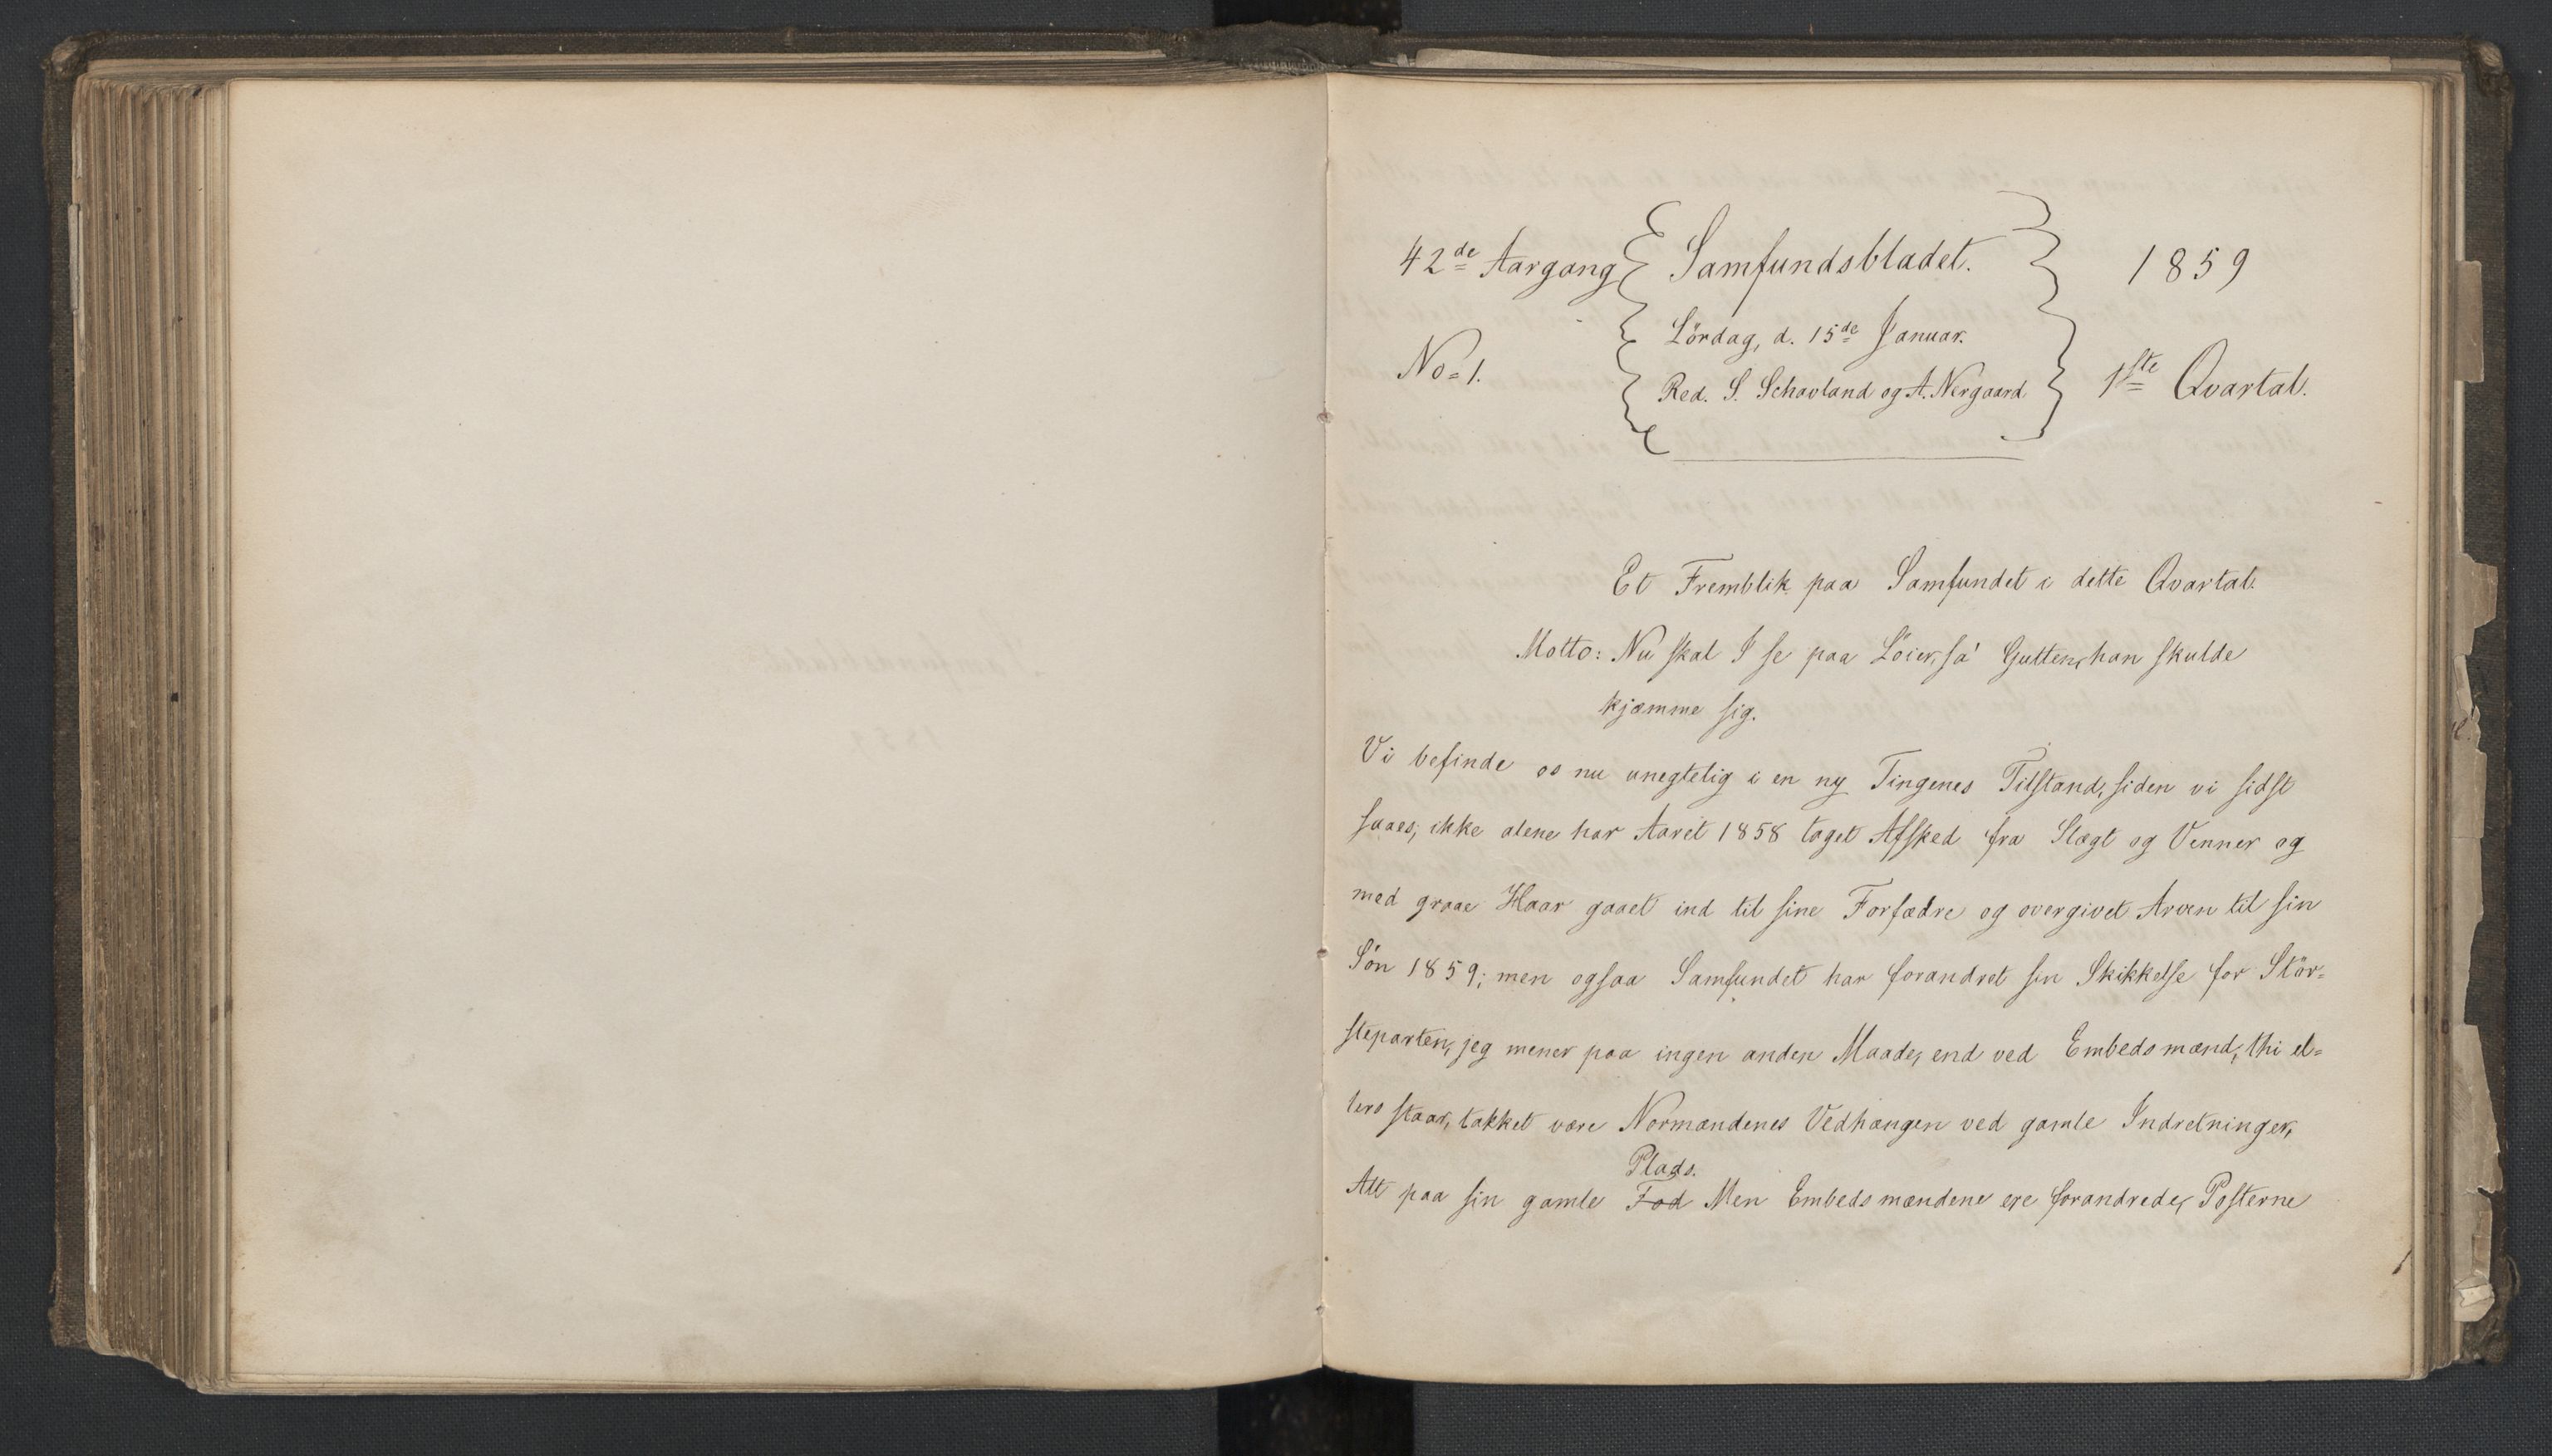 42de Aargang
No 1.
Samfundsbladet.
Lördag, d. 15de Januar.
Red. S. Schavland og A. Nergaard
1859
1ste Qvartal.
Et Fremblik paa Samfundet i dette Qvartal.
Motto: Nu skal I se paa Löier, sa' Gutten, han skulde
kjæmme sig.
Vi befinde os nu unegtelig i en ny Tingenes Tilstand, siden vi sidst
saaes; ikke alene har Aaret 1858 taget Afsked fra Slægt og Venner og
med graae Haar gaaet ind til sine Forfædre og overgivet Arven til sin
Sön 1859; men ogsaa Samfundet har forandret sin Skikkelse for Stör-
steparten, jeg mener paa ingen anden Maade, end ved Embedsmænd, thi el-
lers staar, takket være Normændenes Vedhængen ved gamle Indretninger,
Plads.
Alt paa sin gamle Fod Men Embedsmændene ere forandrede, Posterne